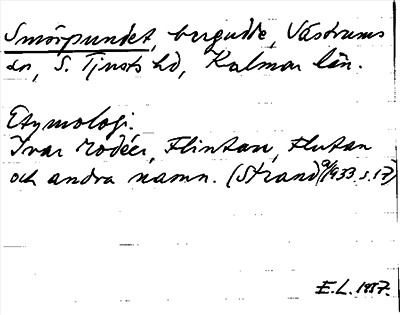 Smörpundet, bergudde, Västrums
sn, S. Tjusts hd, Kalmar län.
Etymologi.
Ivar Modéer, Flintan, Flutan
och andra namn. (Strand 9/1933 s. 17)
E.L. 1957.